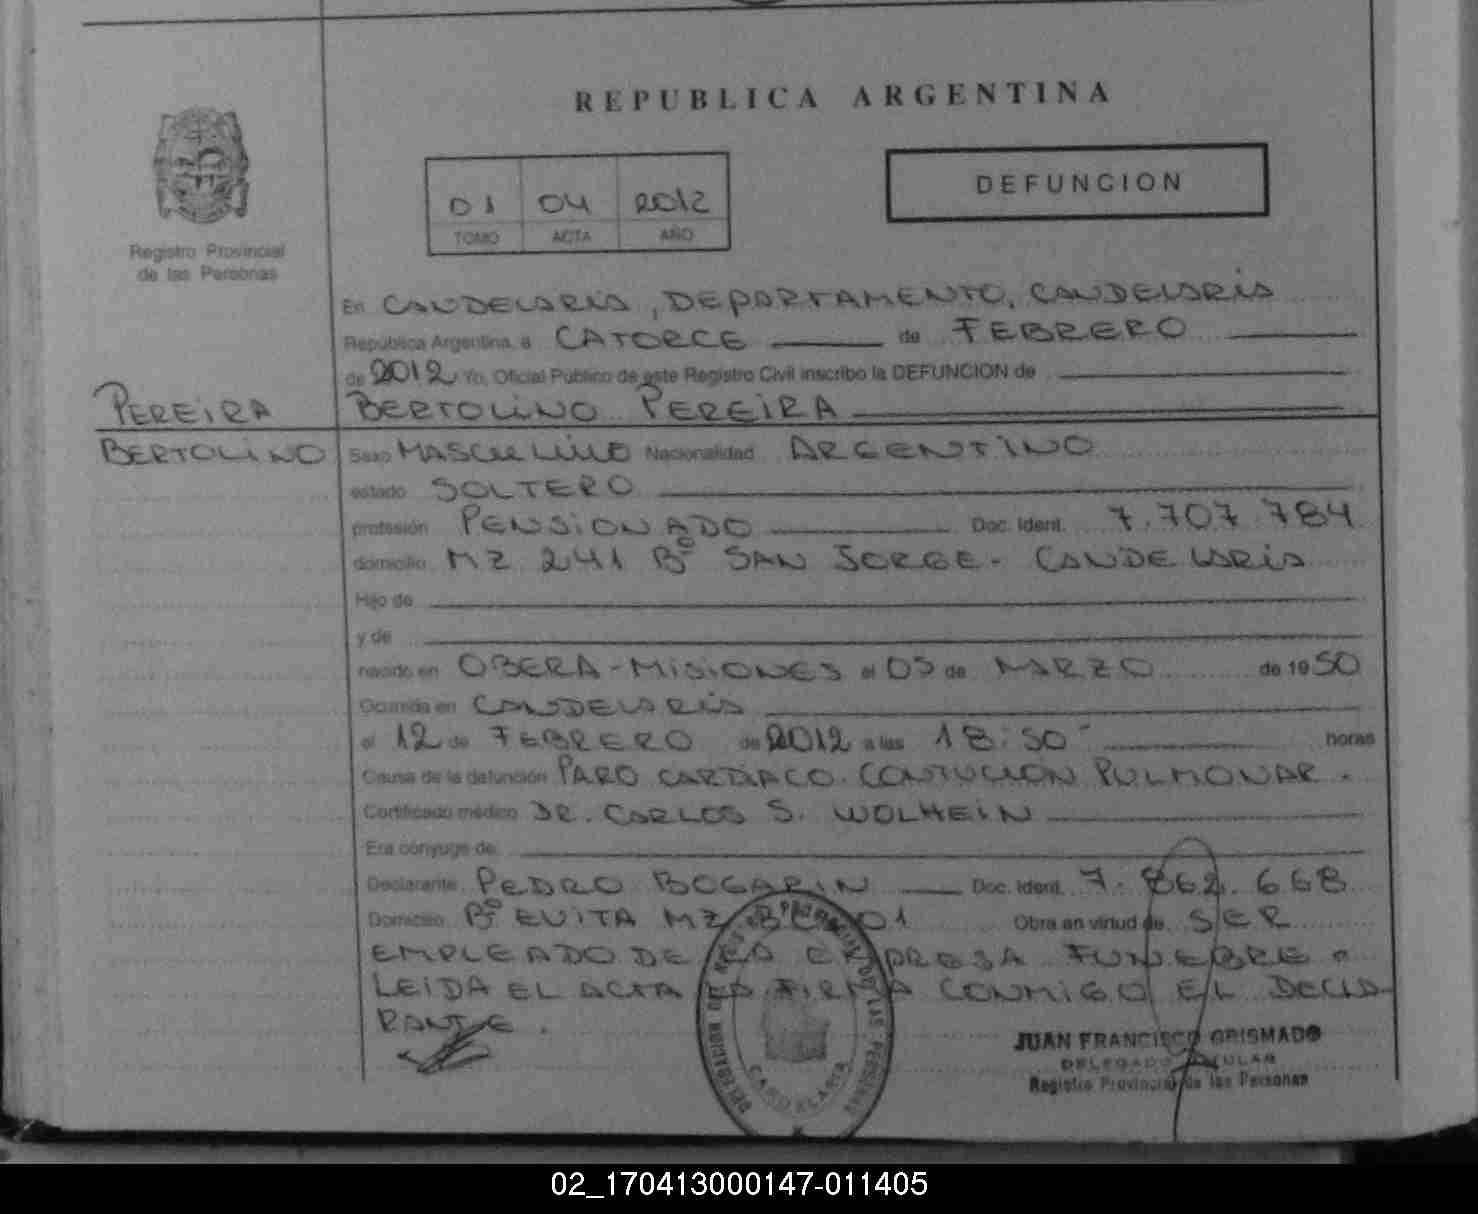 REPUBLICA ARGENTINA
DEFUNCION
01 04 2012
TOMO ACTA AÑO
Registro Provincial
de las Personas
En CANDELARIA, DEPARTAMENTO, CANDELARIA
República Argentina, a CATORCE de FEBRERO
de 2012 Yo, Oficial Público de este Registro Civil inscribo la DEFUNCION de
PEREIRA BERTOLINO PEREIRA
BERTOLINO Sexo MASCULINO Nacionalidad ARGENTINO
estado SOLTERO
profesión PENSIONADO Doc. Ident. 7.707.784
domicilio MZ 241 Bº SAN JORGE - CANDELARIA
Hijo de
y de
nacido en OBERA - MISIONES el 05 de MARZO de 1950
Ocurrida en CANDELARIA
el 12 de FEBRERO de 2012 a las 18:50 horas
Causa de la defunción PARO CARDIACO. CONTUCION PULMONAR.
Certificado médico DR. CARLOS S. WOLHEIN
Era cónyuge de
Declarante PEDRO BOGARIN Doc. Ident. 7.862.668
Domicilio Bº EVITA MZ 01 Obra en virtud de SER
EMPLEADO DE LA EMPRESA FUNEBRE
LEIDA EL ACTA LA FIRMA CONMIGO EL DECLA-
RANTE.
CANDELARIA
JUAN FRANCISCO GRISMADO
DELEGADO TITULAR
Registro Provincial de las Personas
02_170413000147-011405